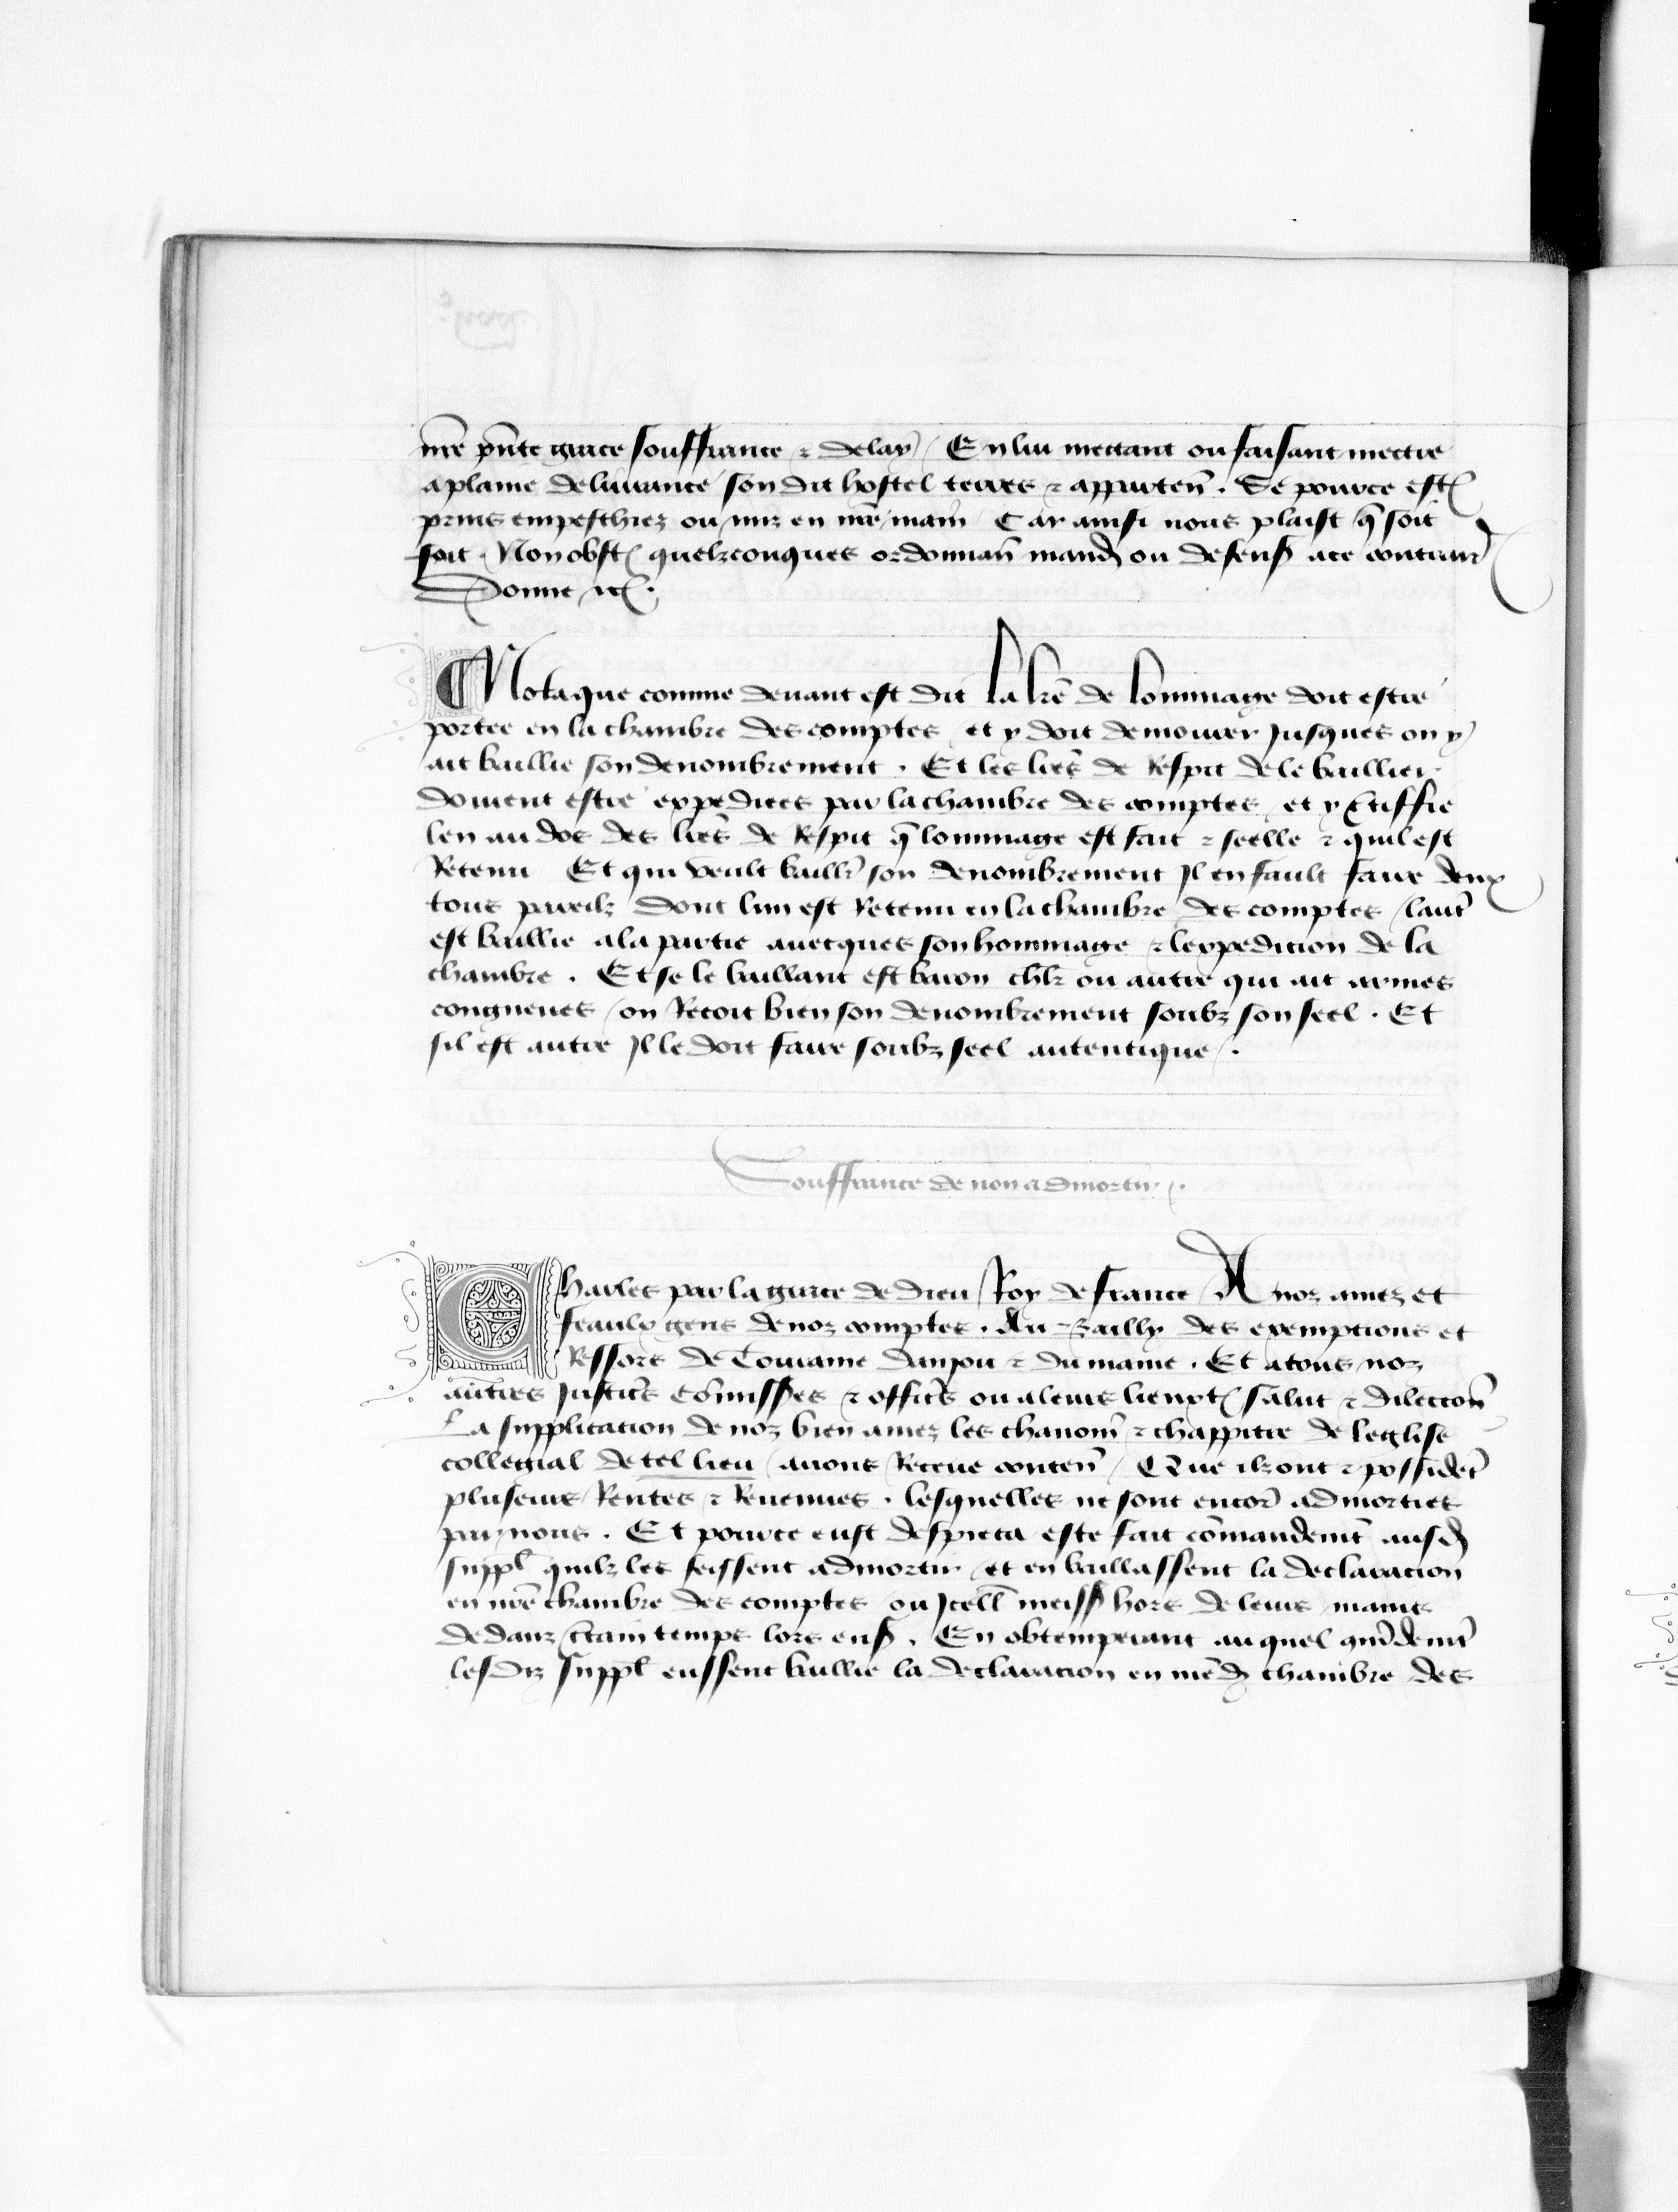 nr̃e pñte grace souffrance ⁊ delay / En lui mettant ou faisant mectre
a plaine deliurance son dit hostel terres ⁊ apparteñ . Se pource est
prins empeschiez ou mis en nr̃e main Car ainsi nous plaist q̃ soit
fait . Non obst quelzconques ordonnañ mand ou defens ace contrair̃
Donne ⁊c̃ .
¶ Nota que comme deuant est dit la lr̃e de lommage doit estre
portee en la chambre des comptes et y doit demourer jusques on y
ait baillie son denombrement . Et les lr̃es de Respit de le baillier
doiuent estre expediees par la chambre des comptes et y c̃tiffie
len au dos des lr̃es de Respit q̃ lommage est fait ⁊ seelle ⁊ quil est
Retenu Et qui veult baill̃r son denombrement Il en fault faire deux
tous pareilz dont lun est Retenu en la chambre des comptes / laut̃
est baillie a la partie auecques son hommage ⁊ lexpedicion de la
chambre . Et se le baillant est baron chlr̃ ou autre qui ait armes
congneues / on Recoit bien son denombrement soubz son seel . Et
sil est autre Il le doit faire soubz seel autentique / .
Souffrance de non admortir / .
Charles par la grace de dieu Roy de france A noz amez et
feaulx gens de noz comptes . Au Bailly des exempcions et
Ressors de Touraine danjou ⁊ du maine . Et a tous noz
aũtres justic̃s com̃iss̃es ⁊ offic̃s ou a leurs lieuxt̃ salut ⁊ dilecc̃on
La supplicacion de noz bien amez les chanoiñ ⁊ chappitre de leglise
collegial de tel lieu / auons Receue conteñ / Que ilz ont ⁊ possident̃
pluseurs Rentes ⁊ Reuenues . lesquelles ne sont encor̃ admorties
par nous . Et pource eust despieca este fait com̃andemt̃ ausd
suppl̃ quilz les feissent admortir et en baillassent la declaracion
en nr̃e chambre des comptes ou Icell̃ meiss hors de leurs mains
dedanz c̃tain temps lors ens . En obtemperant au quel cõmandemt̃
lesdiz suppl̃ eussent baillie la declaracion en nr̃e d chambre des